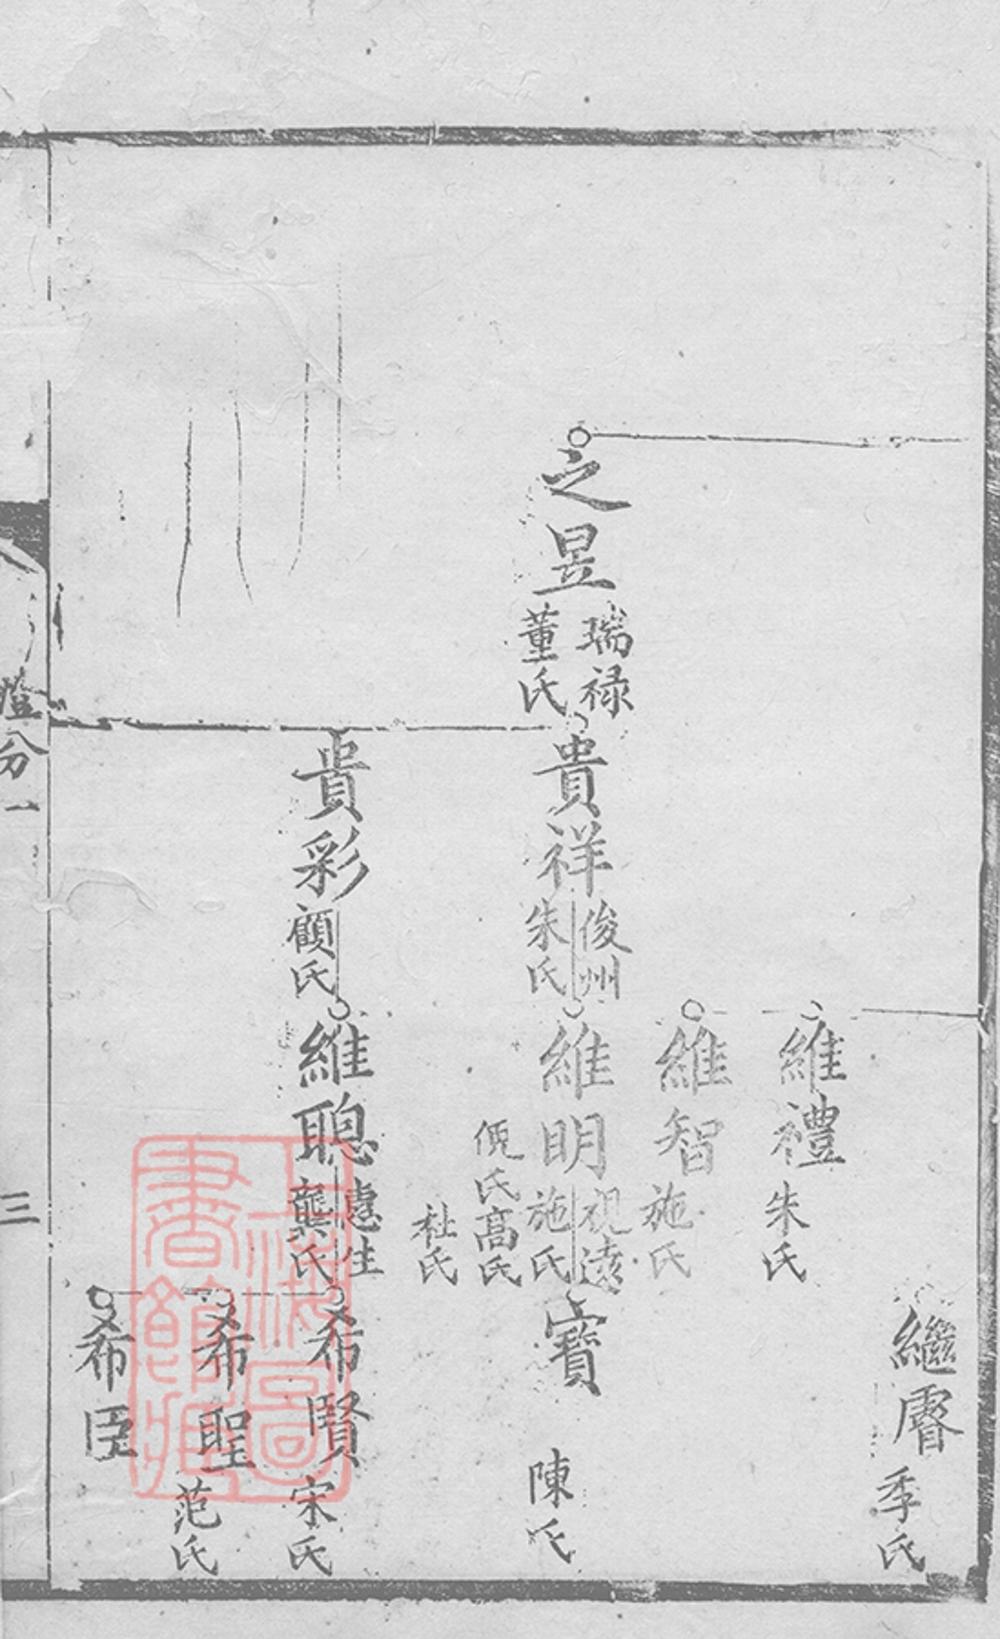 之昱
瑞禄
董氏
貴祥
俊州
朱氏
貴彩
顧氏
維禮
朱氏
維智
施氏
維明
視遠
施氏
倪氏高氏
杜氏
維聰
慮生
龔氏
繼睿
季氏
寳
陳氏
希賢
宋氏
希聖
范氏
希臣
分一
三
上海圖
書館藏